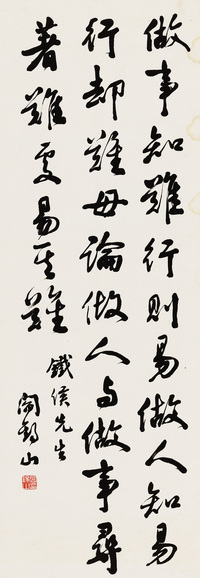 做事知難行則易做人知易
行却難毋論做人与做事尋
著難處易其難
鐵侯先生
閻錫山